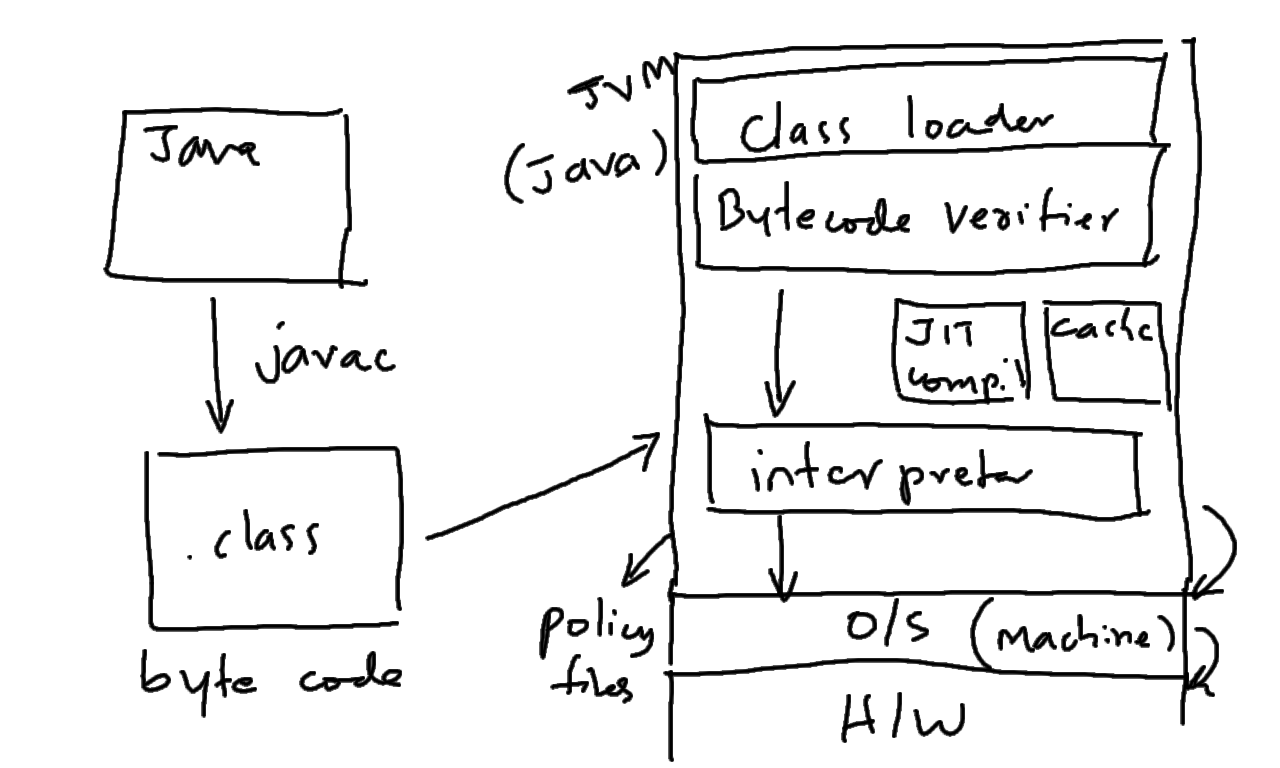 Java
javac
.class
byte code
JVM
(java)
Class loader
Bytecode verifier
JIT
compil
cache
interpreter
policy
files
O/S (Machine)
H/W